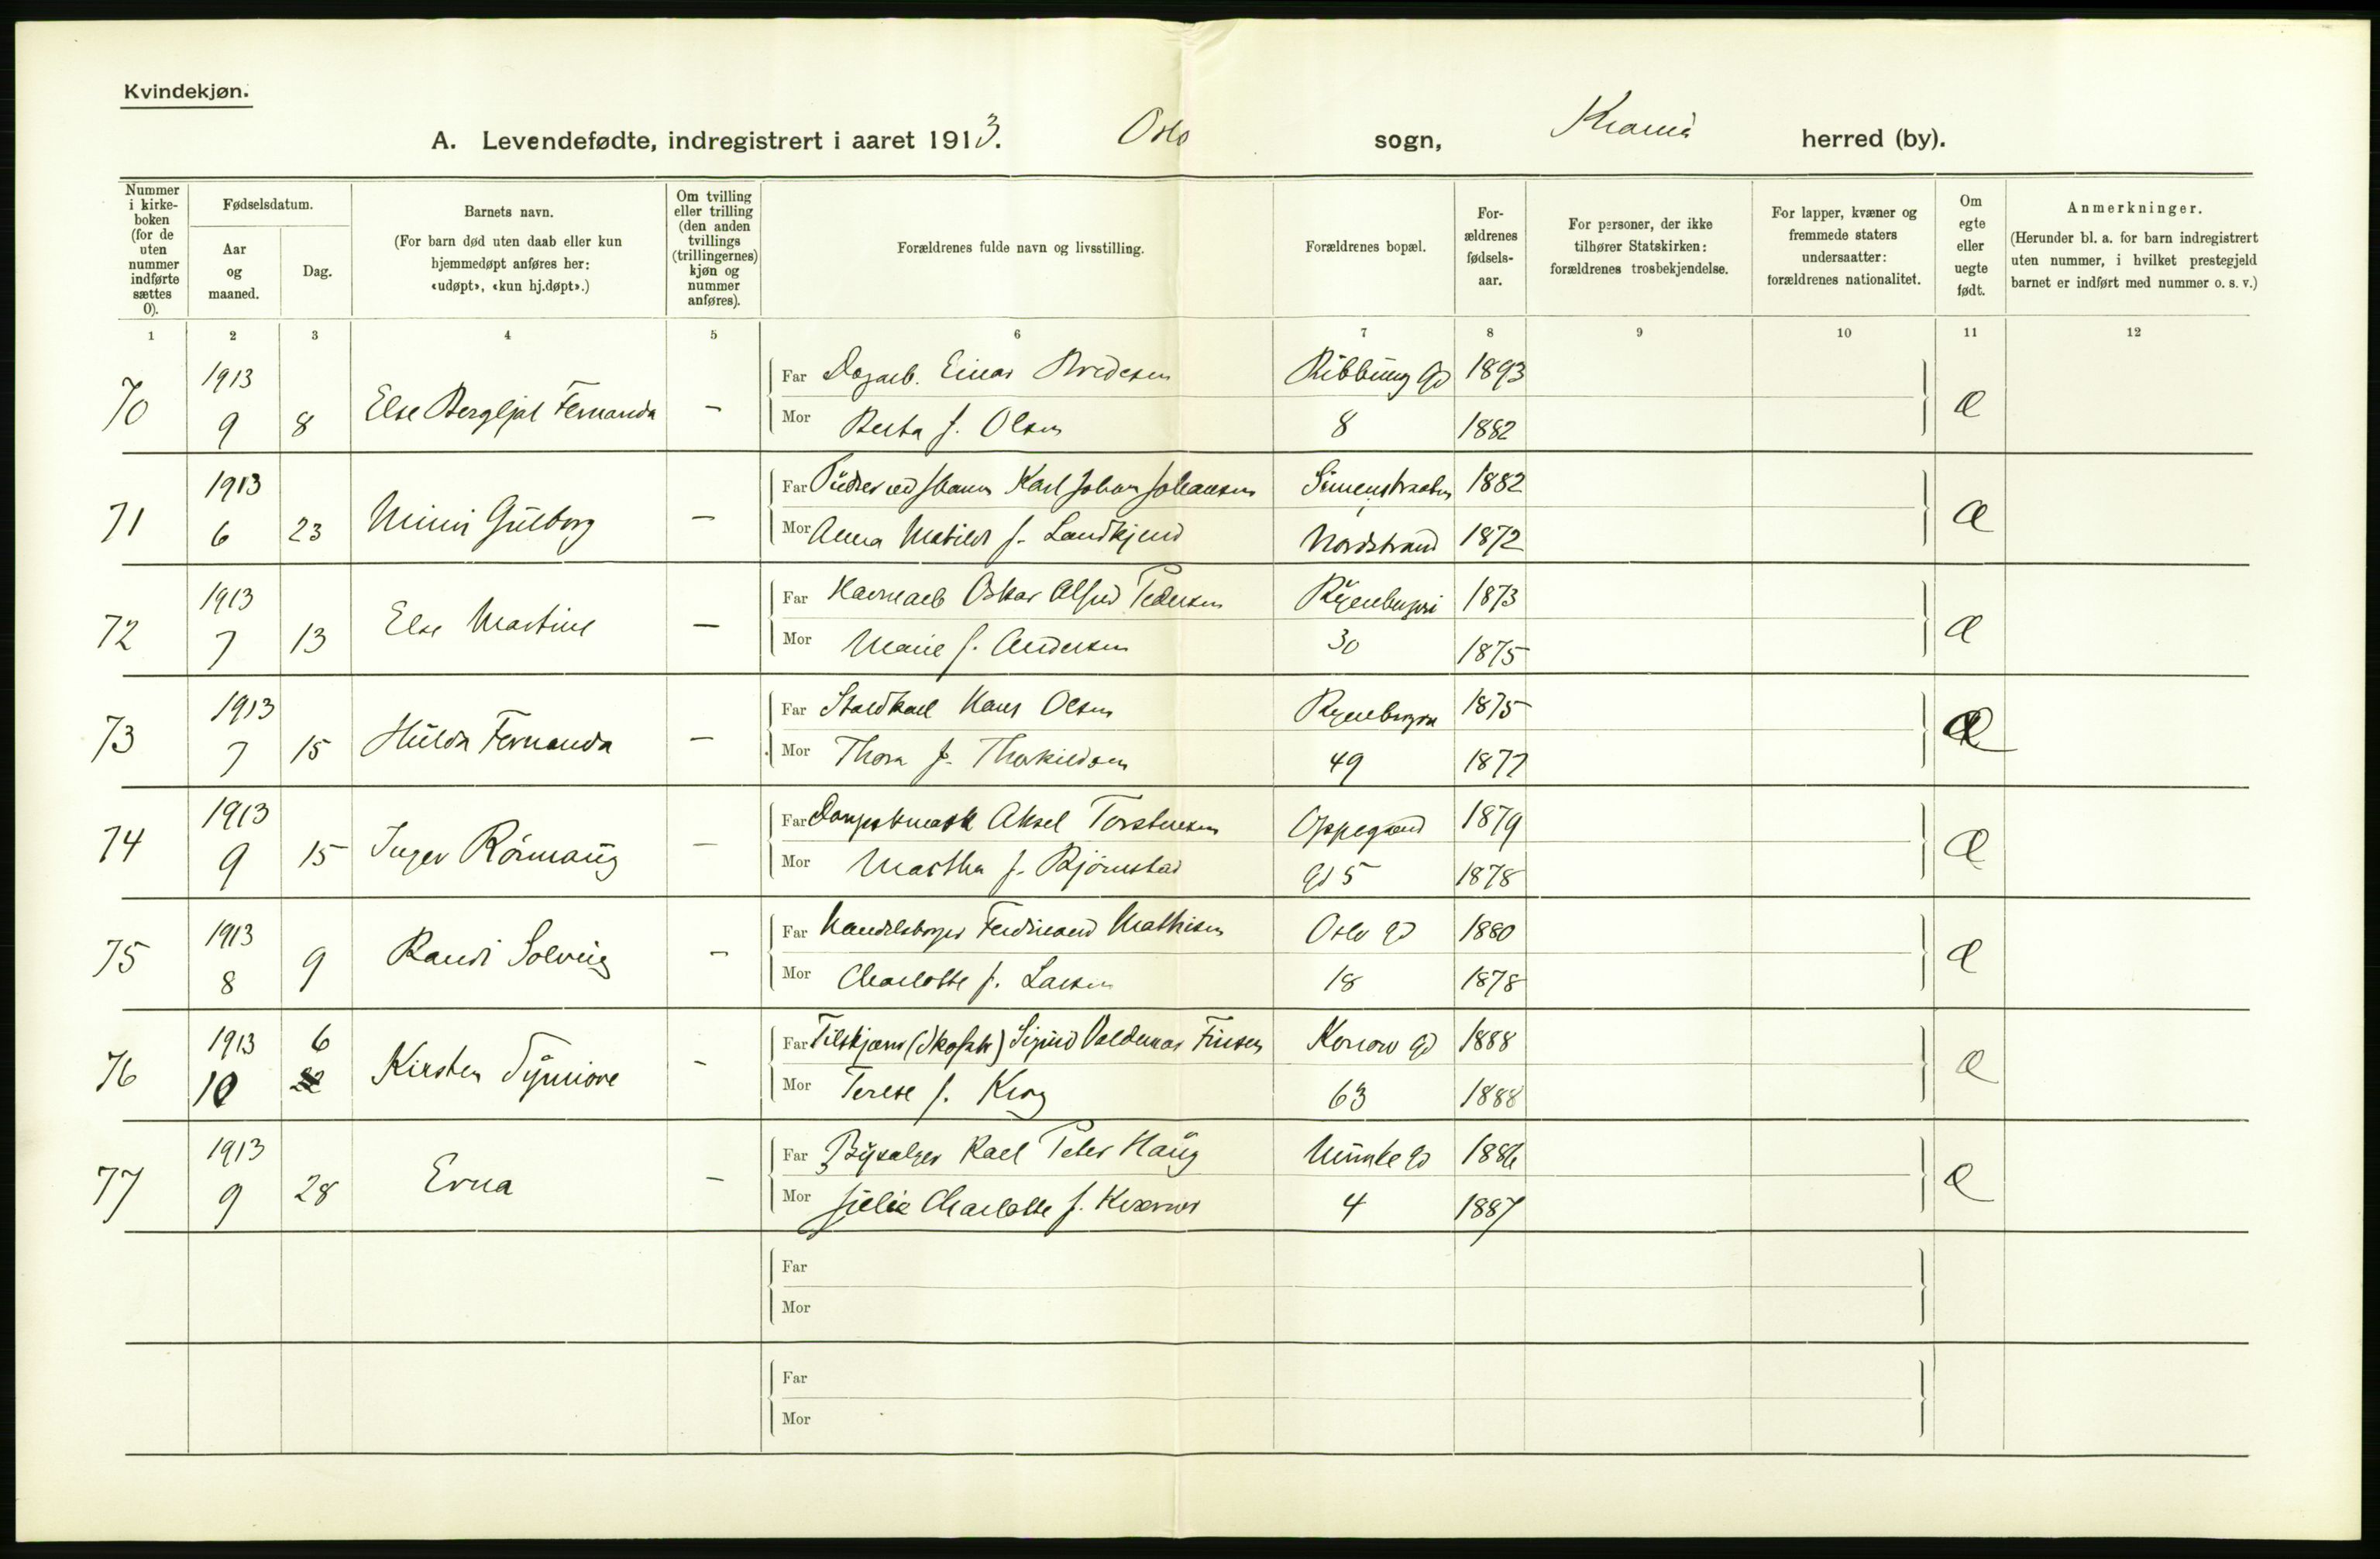 Kvindekjøn.
A. Levendefødte, indregistrert i aaret 1913. Oslo sogn, Krania herred (by).
Nummer i kirke-boken (for de uten nummer indførte sættes 0).
Fødselsdatum.
Aar og maaned.
Dag.
Barnets navn.
(For barn død uten daab eller kun hjemmedøpt anføres her: «udøpt», «kun hj.døpt».)
Om tvilling eller trilling (den anden tvillings (trillingernes) kjøn og nummer anføres).
Forældrenes fulde navn og livsstilling.
Forældrenes bopæl.
For-ældrenes fødsels-aar.
For personer, der ikke tilhører Statskirken: forældrenes trosbekjendelse.
For lapper, kvæner og fremmede staters undersaatter: forældrenes nationalitet.
Om egte eller uegte født.
Anmerkninger.
(Herunder bl. a. for barn indregistrert uten nummer, i hvilket prestegjeld barnet er indført med nummer o. s. v.)
1 2 3 4 5 6 7 8 9 10 11 12
70 1913 9 8 Else Bergljot Fernanda -
Far Dagarb. Einar Bredesen Ribbung Gd 1893
Mor Berta f. Olsen 8 1882
71 1913 6 23 Mimi Gulborg -
Far Karl Johan Johansen 1882
Mor Anna Matilde f. Nordstrand 1872
72 1913 7 13 Else Martine -
Far Havnearb Oskar Alfred Pedersen 1873
Mor Marie f. Andersen 30 1875
73 1913 7 15 Hulda Fernanda -
Far Staldkarl Hans Olsen 1875
Mor Thora f. Thorkildsen 49 1877
74 1913 9 15 Inger Rönnaug -
Far Aksel Torstensen Oppegaard 1879
Mor Martha f. Björnstad Gd 5 1878
75 1913 8 9 Randi Solveig -
Far Ferdinand Mathisen Oslo Gd 1880
Mor Charlotte f. Larsen 18 1878
76 1913 10 6 Kirsten Synnöve -
Far Tilskjærer (Skofabr) Sigurd Valdemar Finsen Konow Gd 1888
Mor Terese f. Krog 63 1888
77 1913 9 28 Erna -
Far Karl Peter Haug Munke Gd 1886
Mor Julie Charlotte f. Kværner 4 1887
Far
Mor
Far
Mor